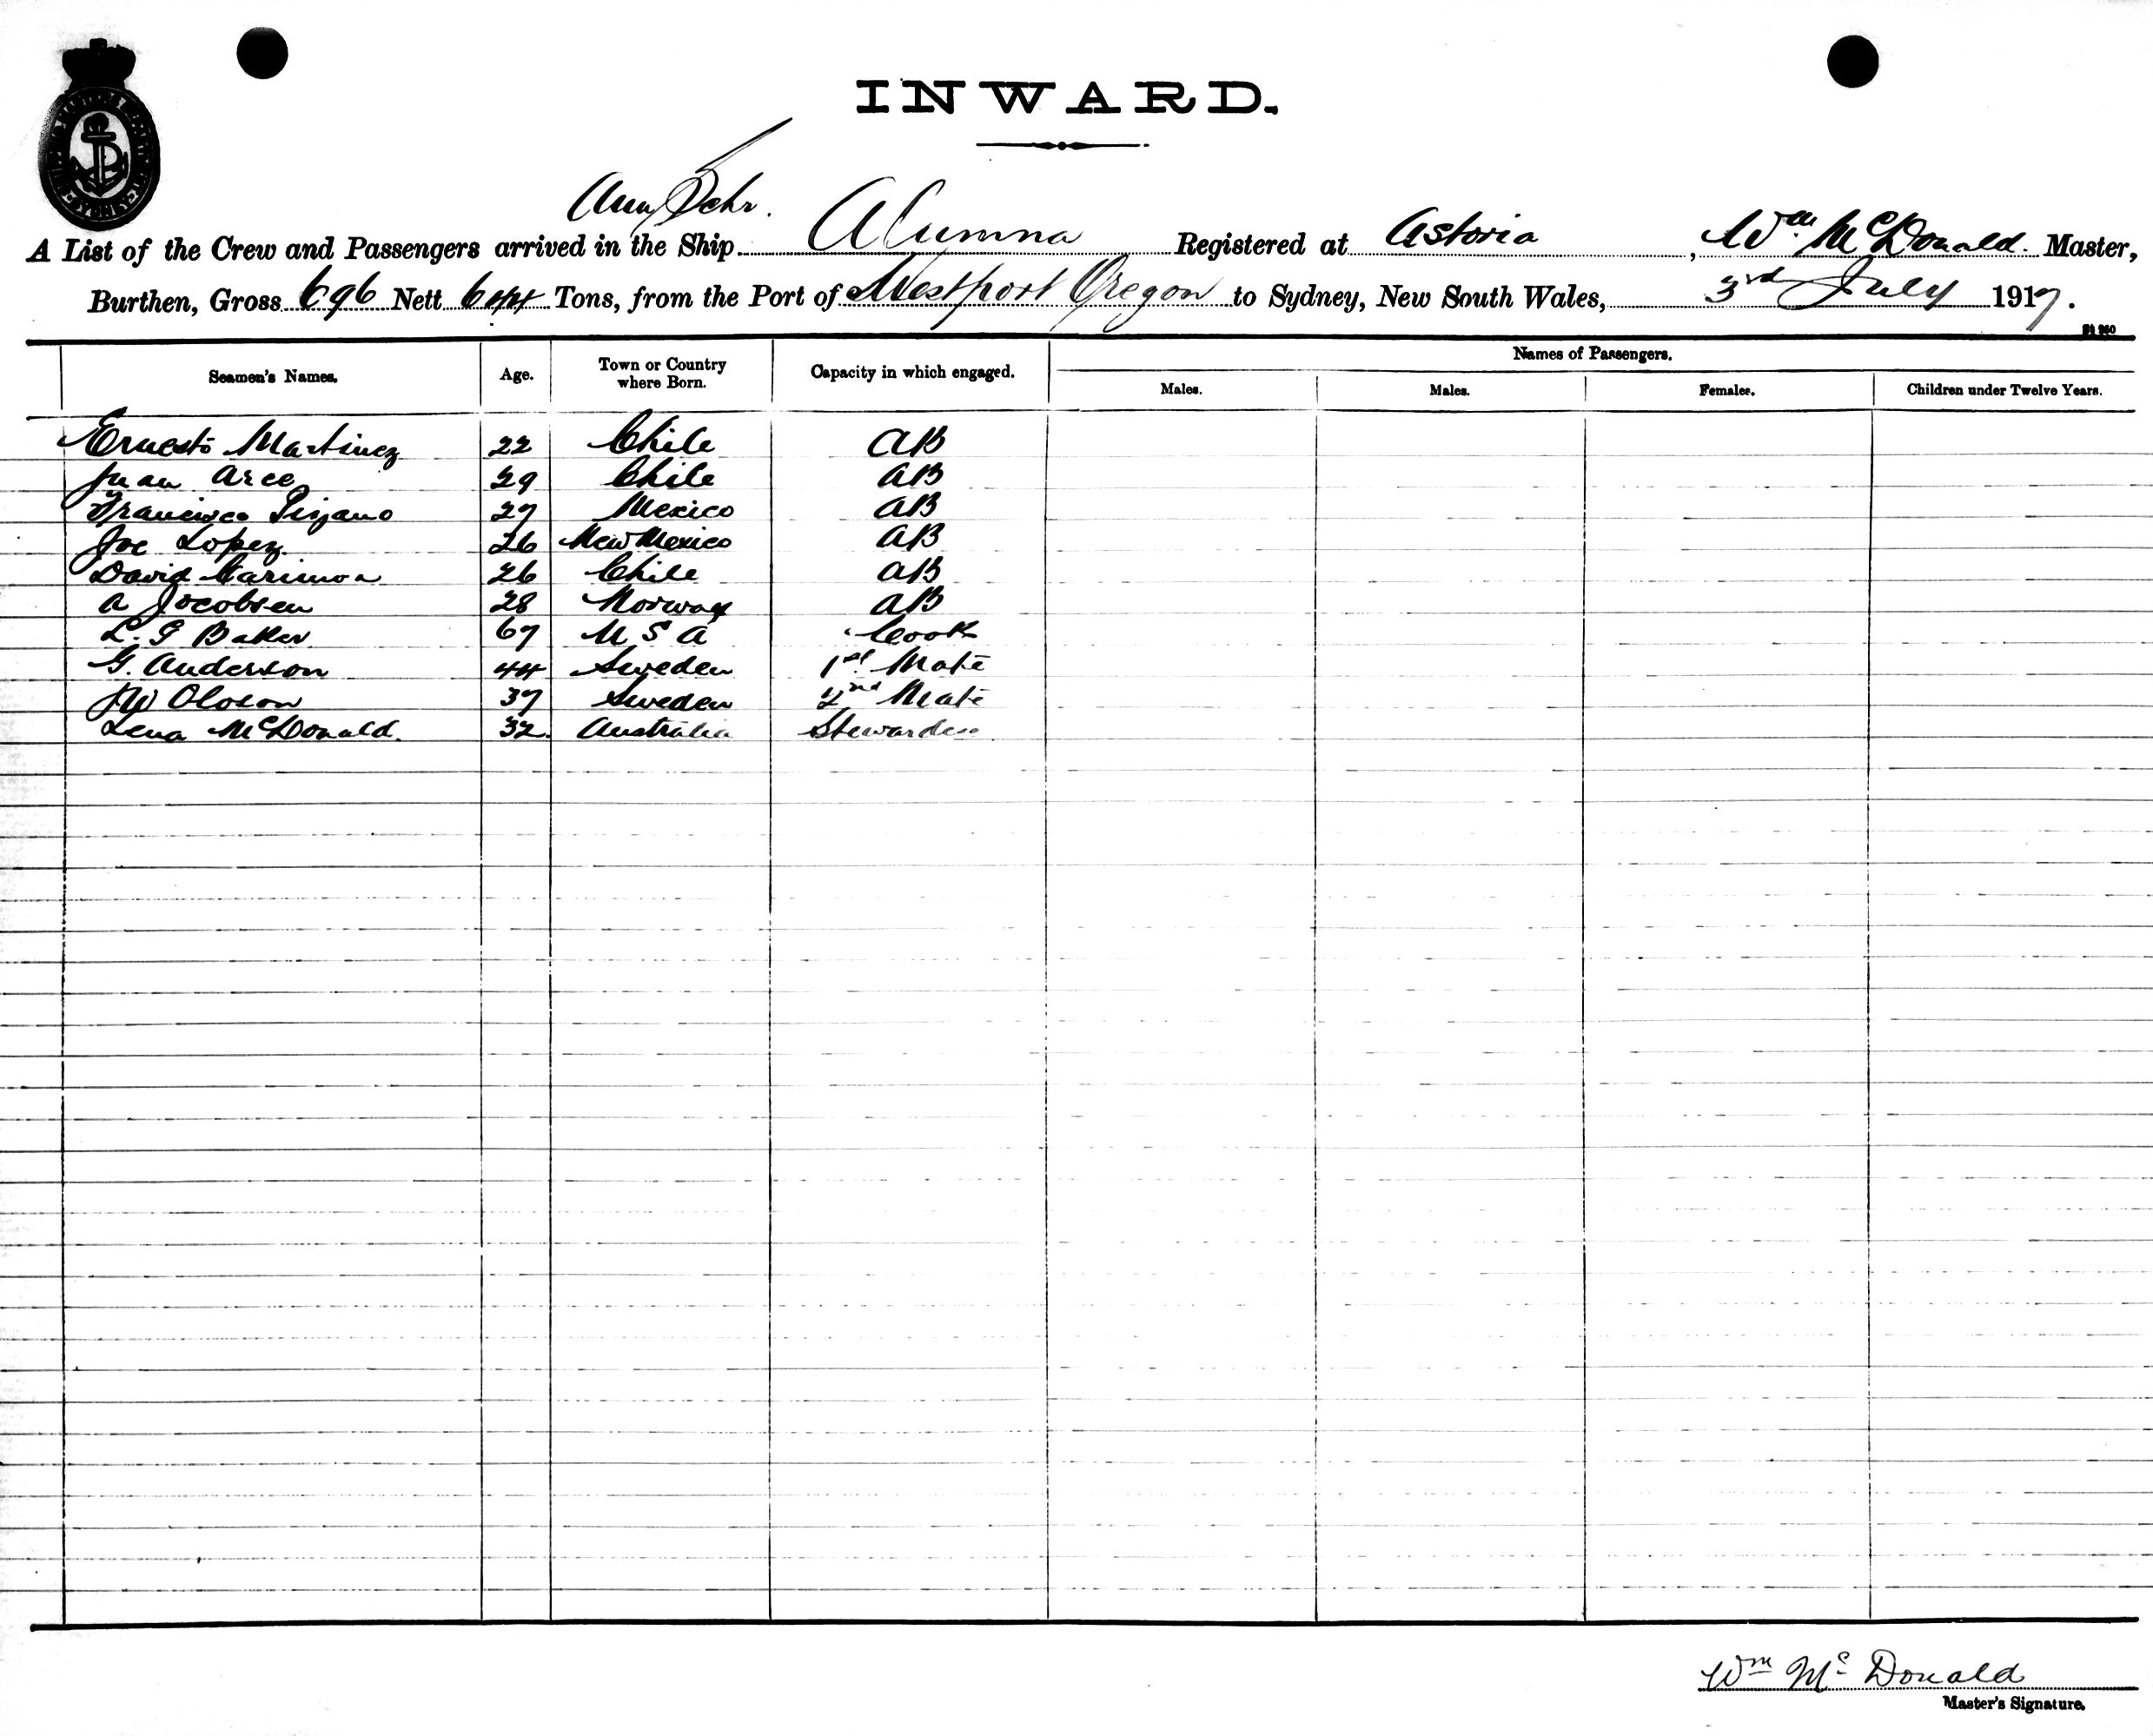 INWARD.
Am Schr.
A List of the Crew and Passengers arrived in the Ship Alumna Registered at Astoria, Wm. McDonald. Master,
Burthen, Gross 696 Nett 644 Tons, from the Port of Westport Oregon to Sydney, New South Wales, 3rd July 1917.
Seamen's Names. Age. Town or Country where Born. Capacity in which engaged. Names of Passengers.
Males. Males. Females. Children under Twelve Years.
Ernesto Martinez 22 Chile AB
Juan Arce 29 Chile AB
Francisco 27 Mexico AB
Joe Lopez 26 New Mexico AB
David 26 Chile AB
A Jocobsen 28 Norway AB
L. G Baker 67 U S A Cook
G. Anderson 44 Sweden 1st Mate
Oloson 37 Sweden 2nd Mate
Lena McDonald. 32 Australia Stewardess
Wm Mc Donald
Master's Signature.